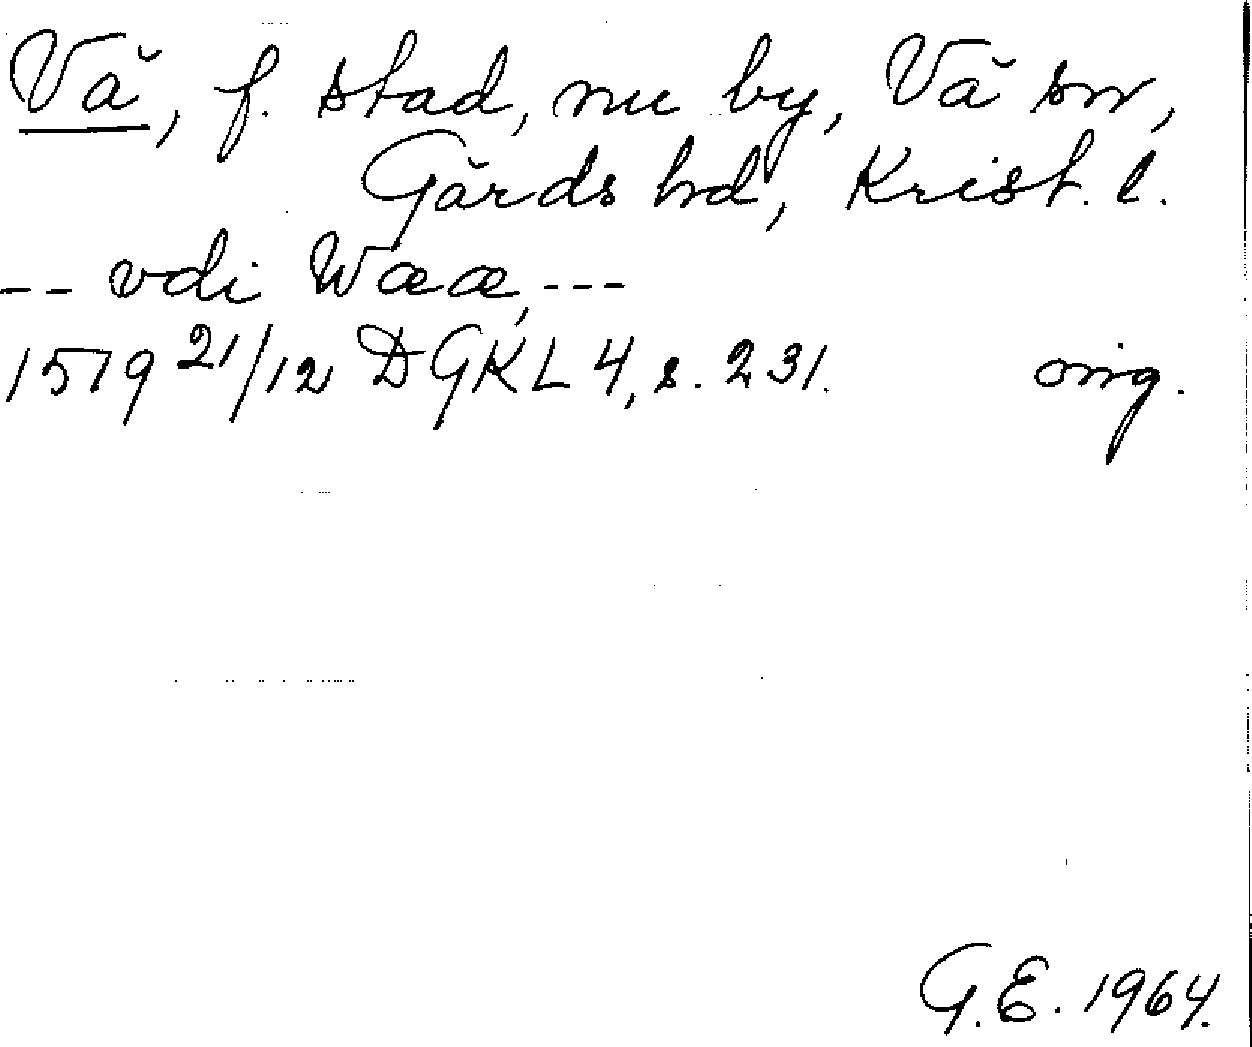 Vå, f. stad, nu by, Vå sn,
Gärds hd, Krist. l.
-- vdi Wææ, ---
1519 21/12 DGKL 4, s. 231. orig.
G.E. 1964.